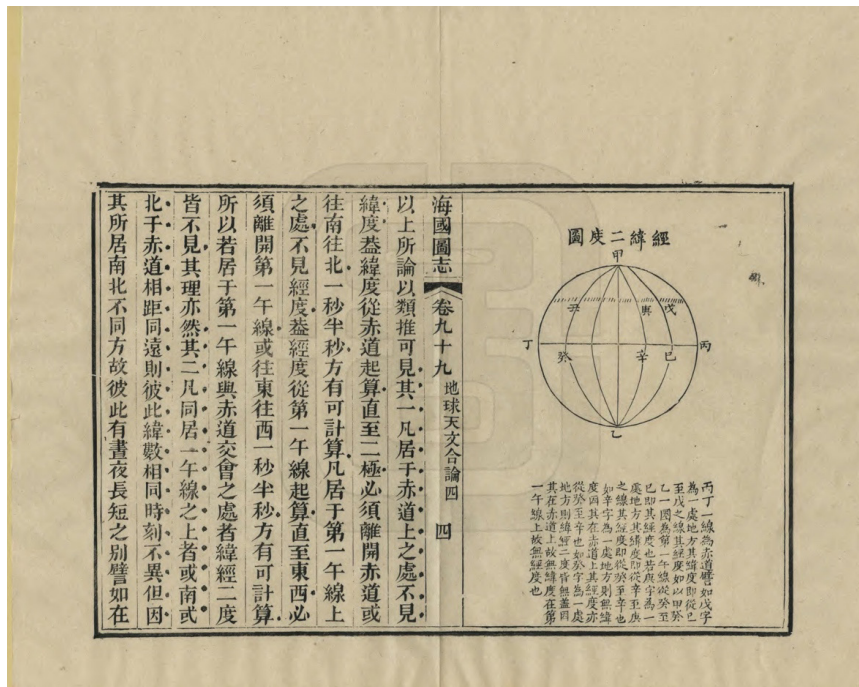 經緯二度圖
甲
戊
庚
丑
丙
丁
巳
辛
癸
乙
丙丁一線為赤道譬如戊字
為一處地方其緯度即從巳
至戊之線其經度如以甲癸
乙一圈為第一午線從癸至
巳即其經度也若庚字為一
處地方其緯度即從辛至庚
之線其經度即從癸至辛也
如辛字為一處地方則無緯
度因其在赤道上其經度亦
從癸至辛也如癸字為一處
地方則緯經二度皆無蓋因
其在赤道上故無緯度在第
一午線上故無經度也
海國圖志 卷九十九 地球天文合論四 四
以上所論以類推可見其一凡居于赤道上之處不見
緯度葢緯度從赤道起算直至二極必須離開赤道或
往南往北一秒半秒方有可計算凡居于第一午線上
之處不見經度葢經度從第一午線起算直至東西必
須離開第一午線或往東往西一秒半秒方有可計算
所以若居于第一午線與赤道交會之處者緯經二度
皆不見其理亦然其二凡同居一午線之上者或南或
北于赤道相距同遠則彼此緯數相同時刻不異但因
其所居南北不同方故彼此有晝夜長短之別譬如在